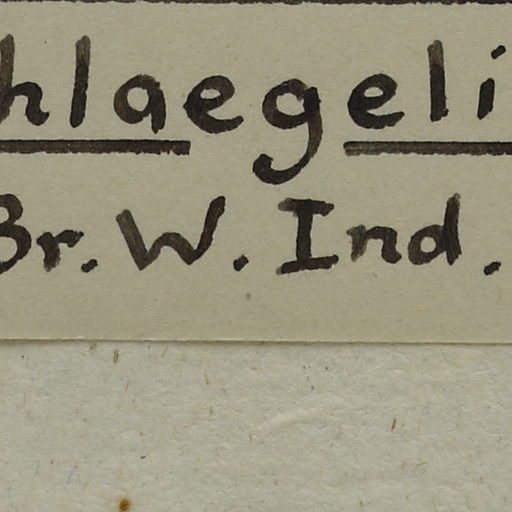 hlaegeli
Br. W. Ind.